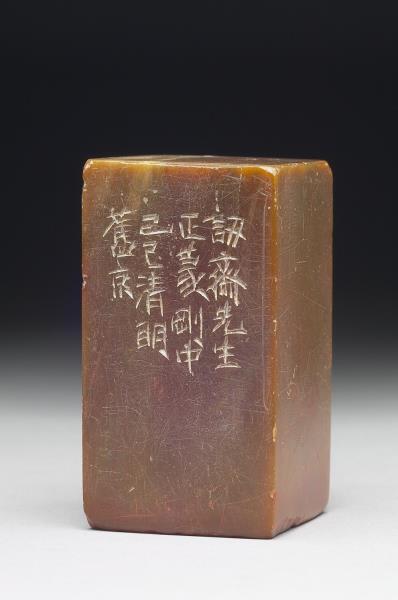 訒齋先生
正篆剛中
己巳清明
舊京